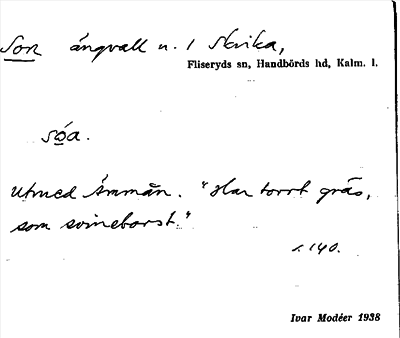 Son ängvall n. 1 Skvika,
Fliseryds sn, Handbörds hd, Kalm. l.
sóa.
Utmed Emmån. "Har torrt gräs,
som svineborst."
s. 140.
Ivar Modéer 1938